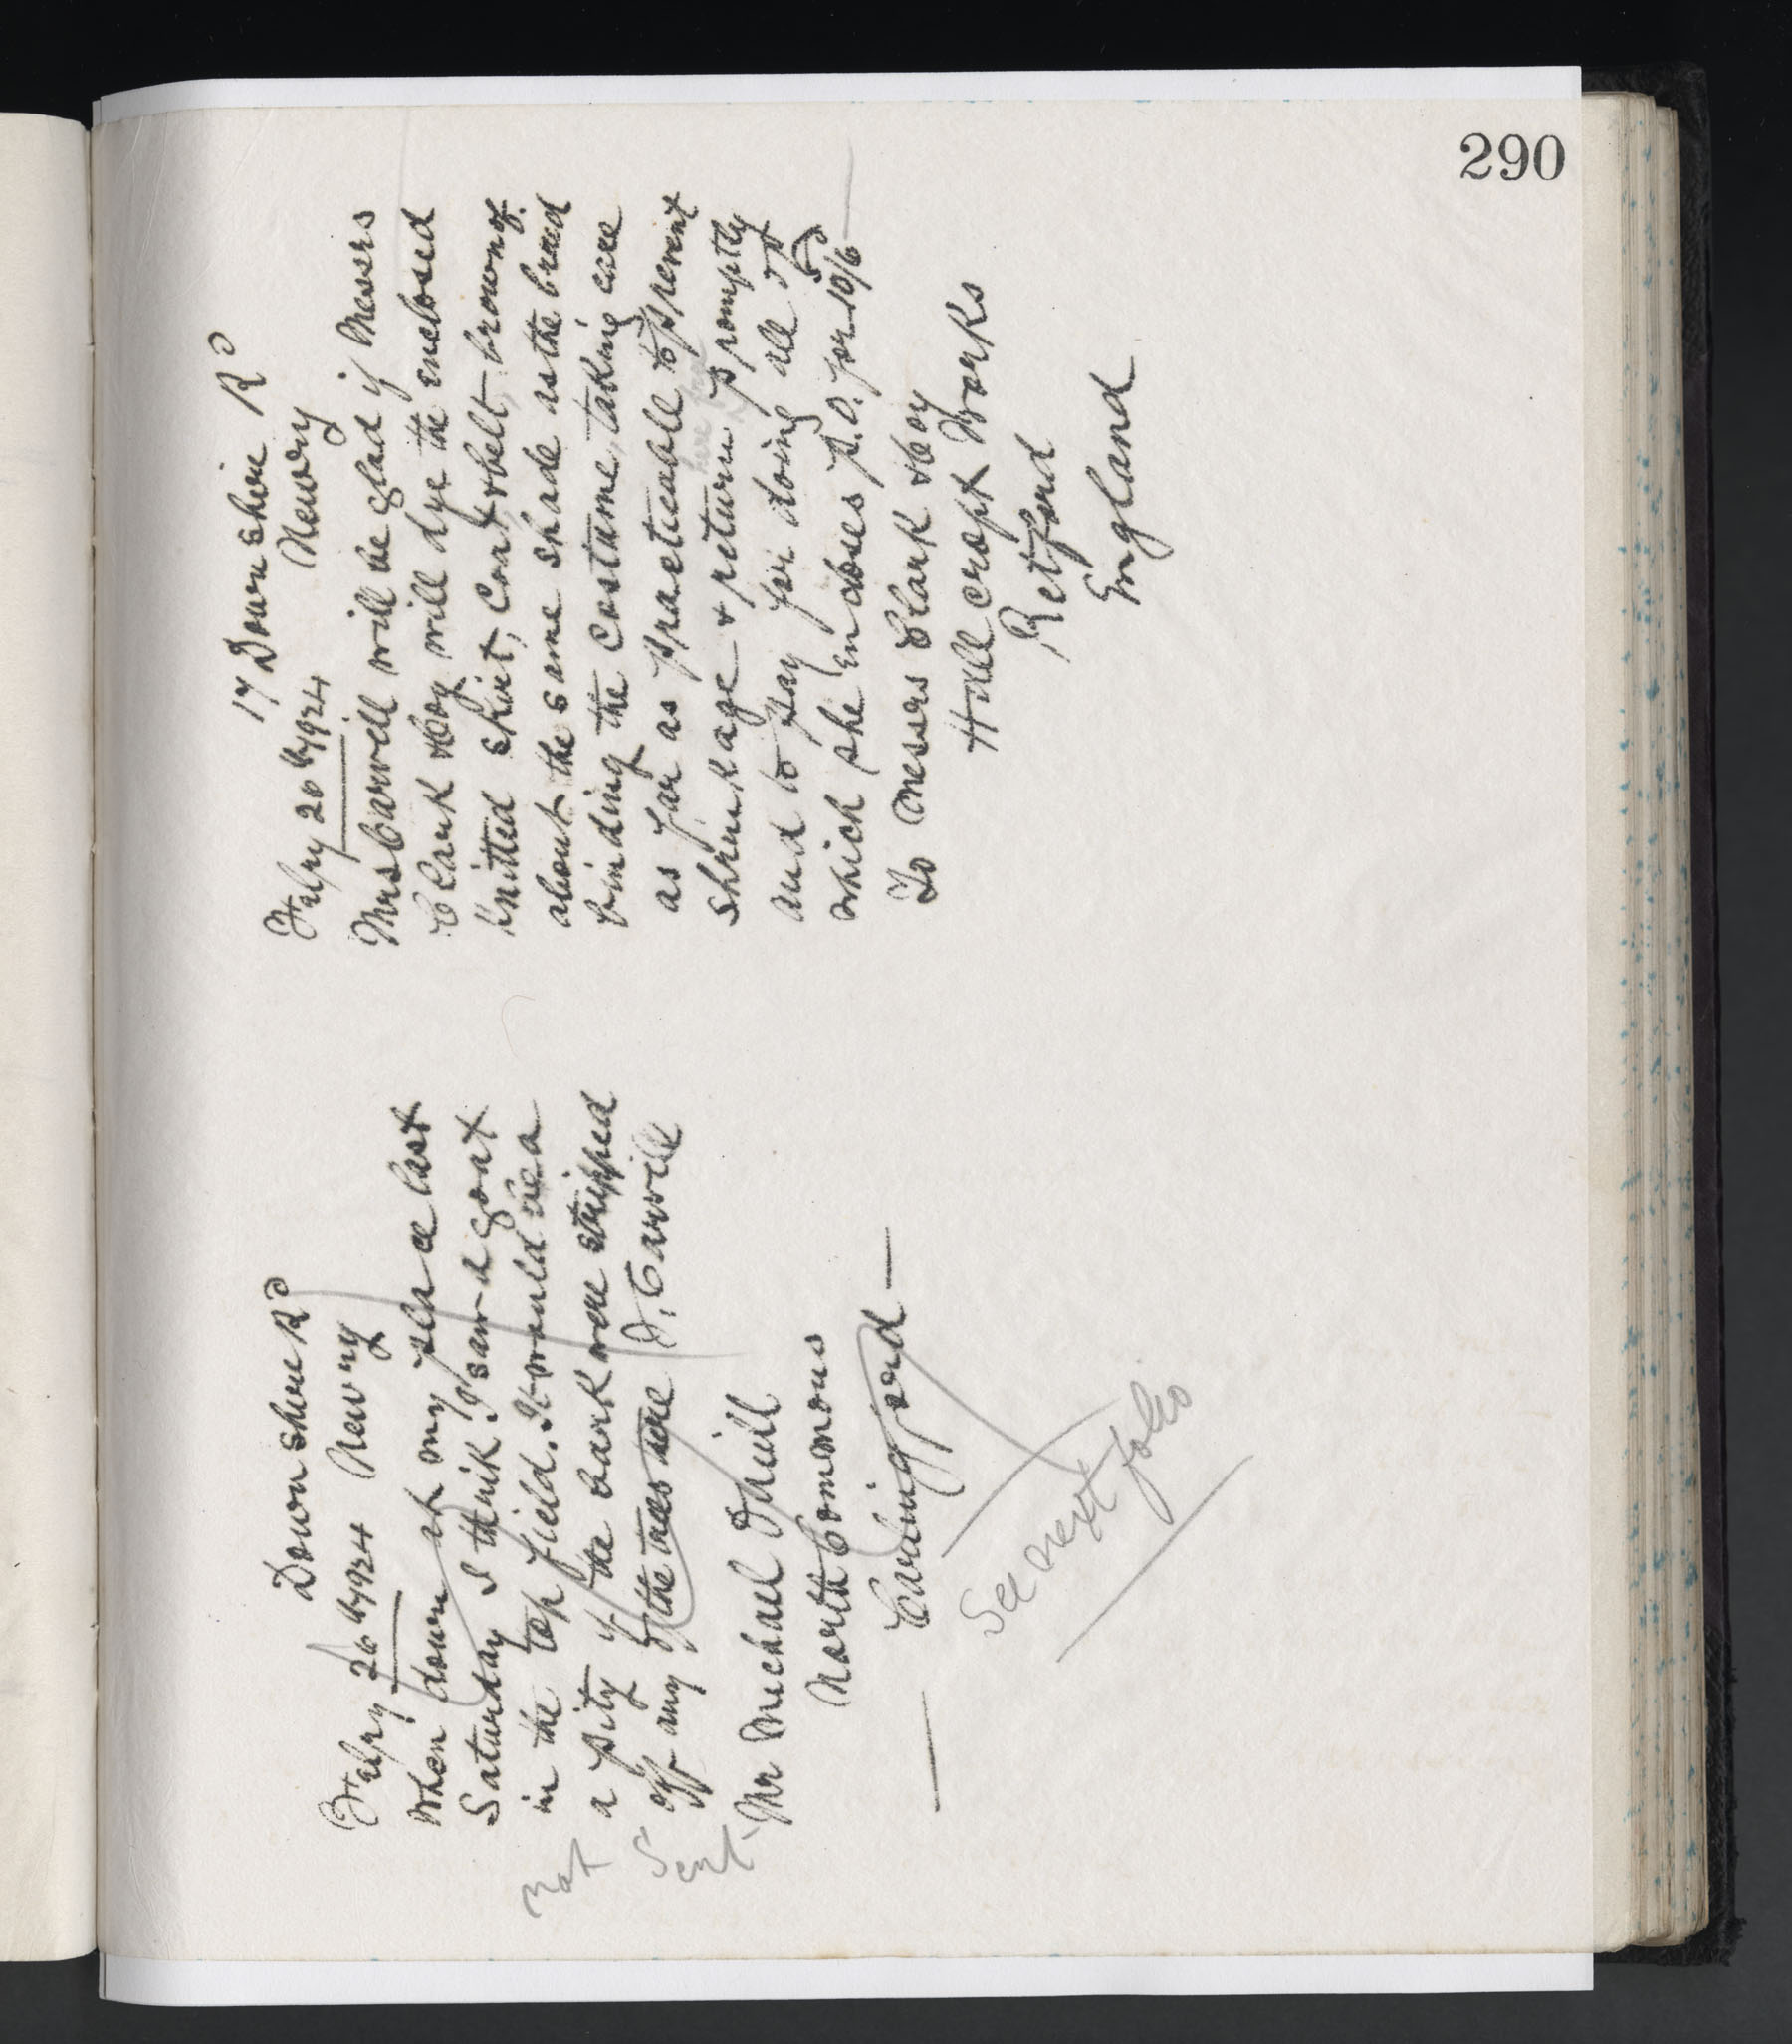 290
Downshire Rd
Feby 26th/1924 Newry
When down at my place last
Saturday I think I saw a goat
in the top field. It would be a
a pity if the bark were stripped
off any of the trees here
Carvill
Not
Sent
Mr Michael O'Neill
North Commons
Carlingford
See next folio
17 Downshire Rd
Newry
Feby 26th/1924
Mrs Carvill will be glad if Messrs
Clark & Coy will dye the enclosed
knitted skirt, coat & belt, brown of
about the same shade as the braid
binding the costume, taking care
as far as practicable to prevent
shrinkage & return promptly
and to pay for doing all
which she encloses P.O. for 10/6
To Messrs Clark & Coy
Hall cropt Works
Retford
England